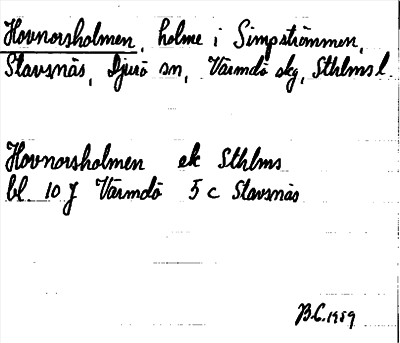 Hovnorsholmen, holme i Simpströmmen,
Stavsnäs, Djurö sn, Värmdö skg, Sthlms l.
Hovnorsholmen ek Sthlms
bl. 10 J Värmdö 5 c Stavsnäs
B.C. 1989